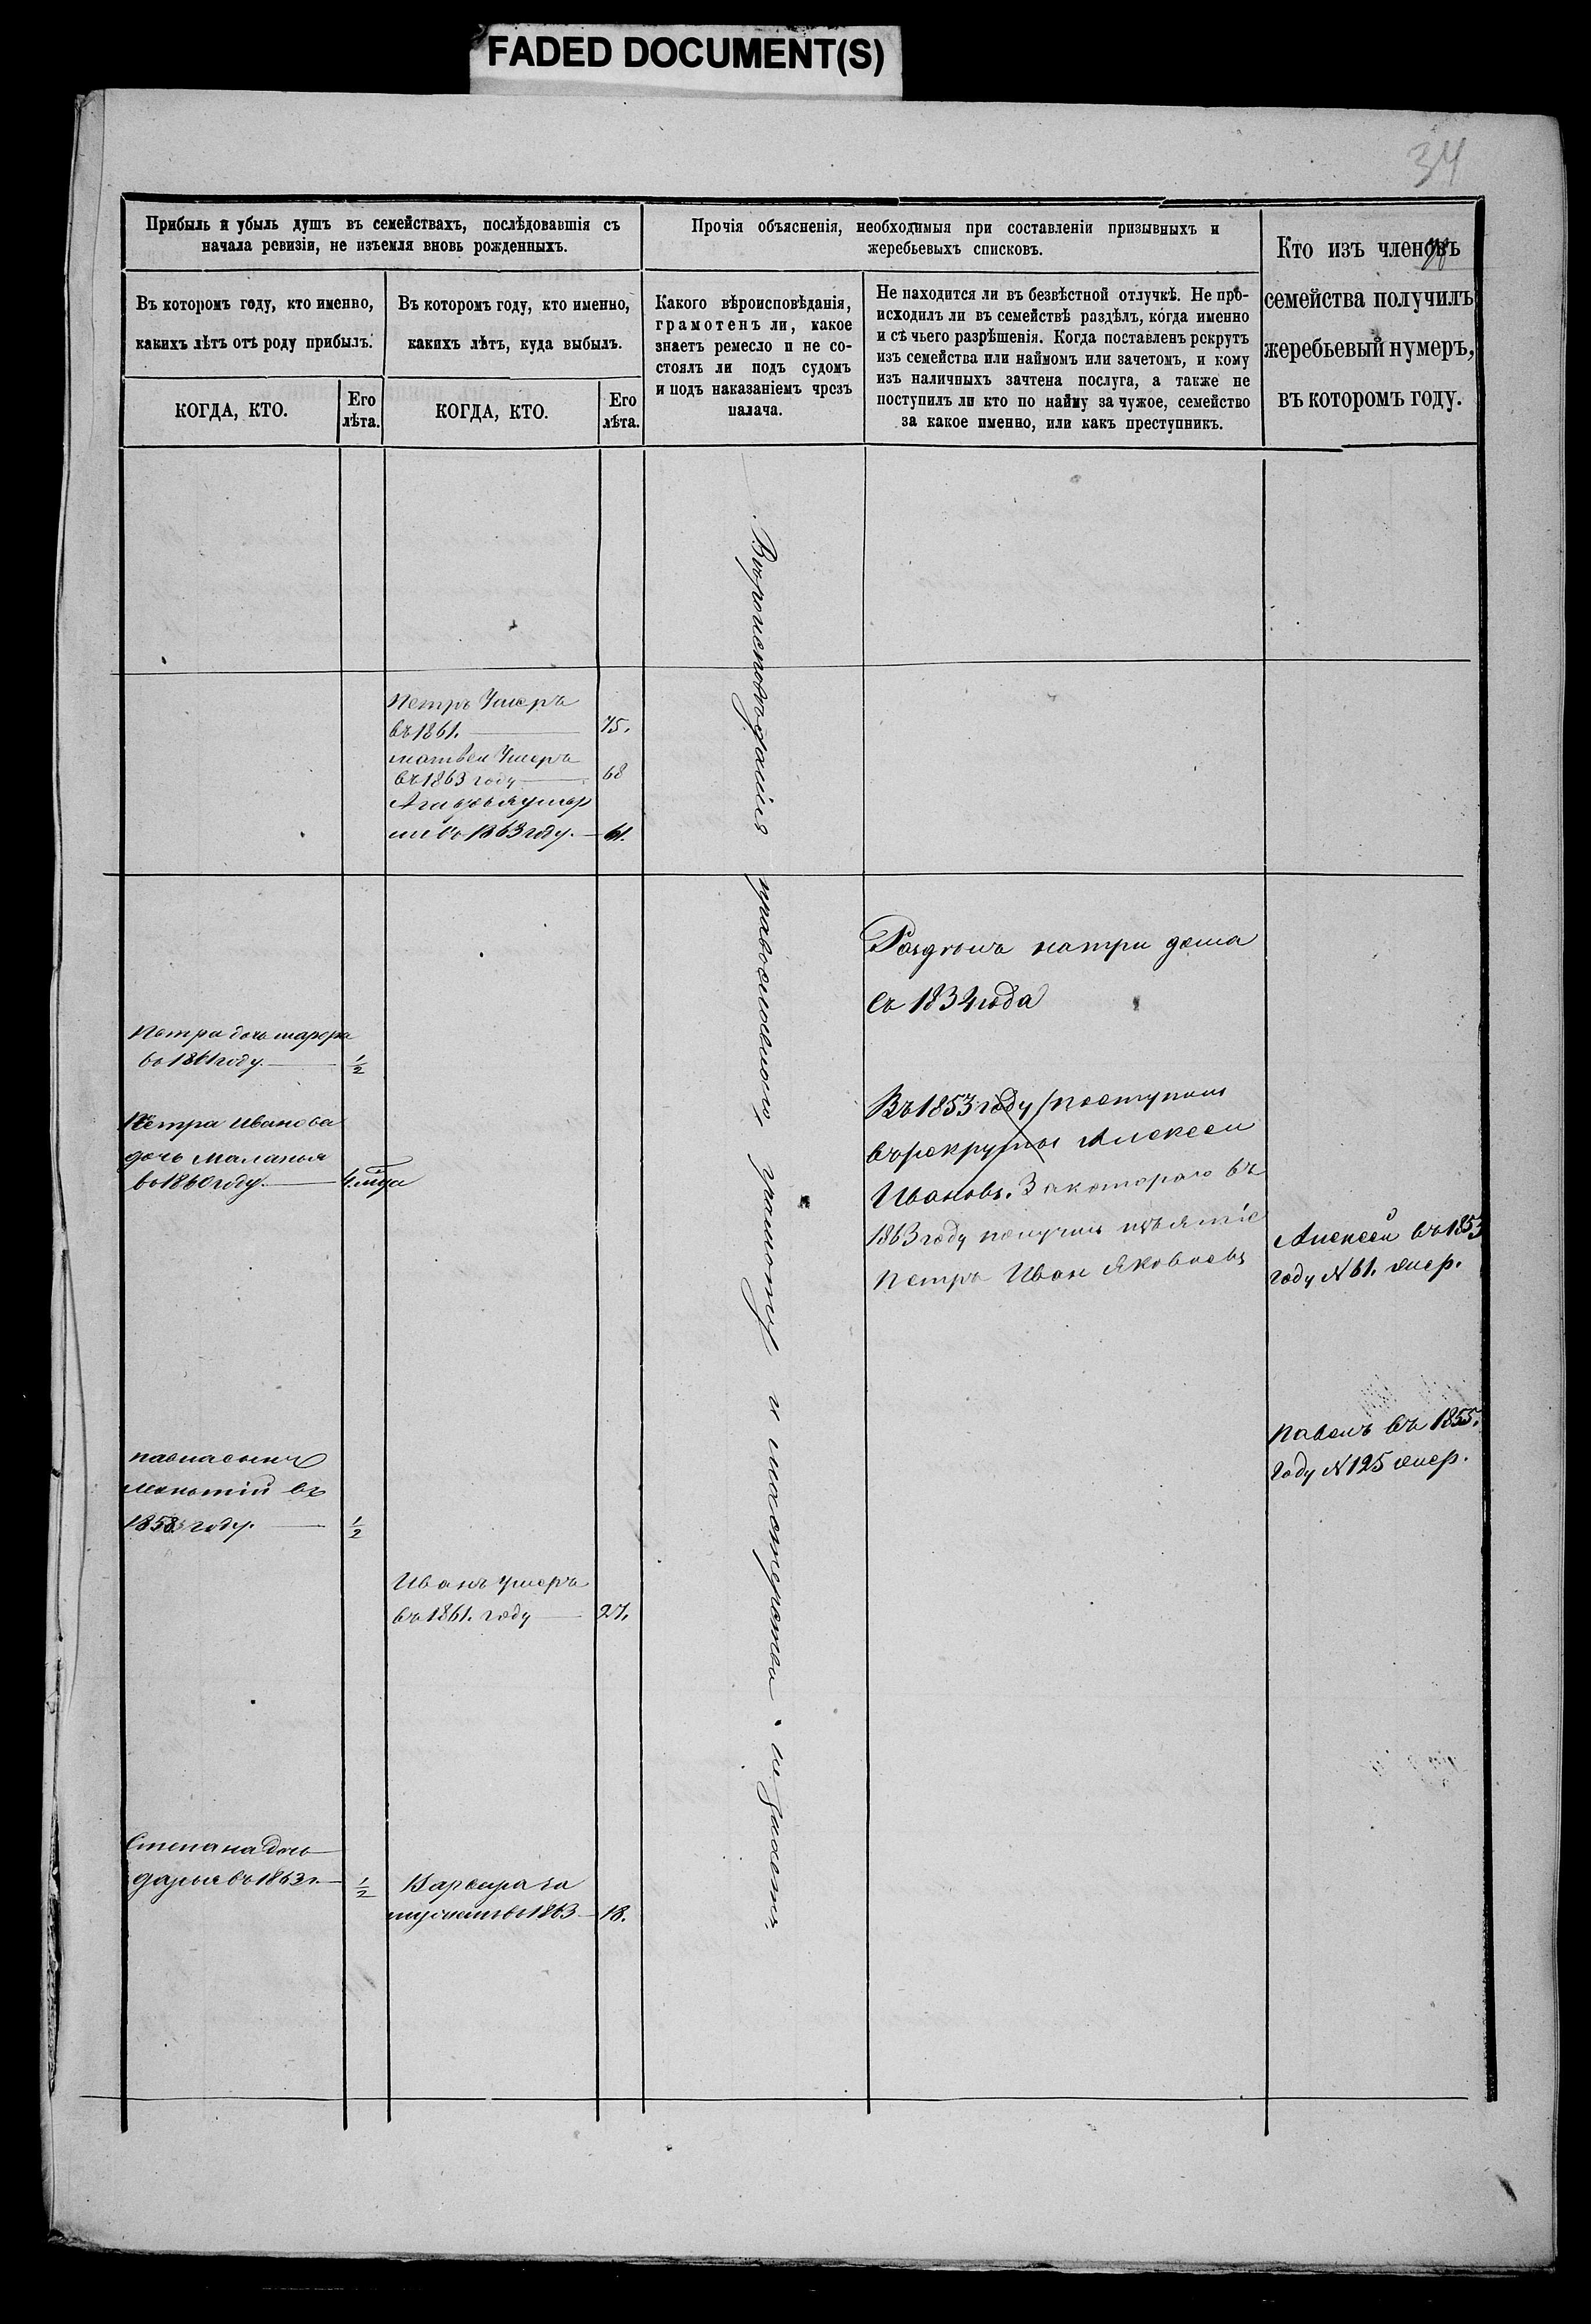 FADED DOCUMENT(S)
34
Прибыль и убыль душъ въ семействахъ, послѣдовавшія съ
начала ревизіи, не изъемля вновь рожденныхъ.
Въ которомъ году, кто именно,
какихъ лѣтъ отъ роду прибылъ.
КОГДА, КТО.
Его
лѣта.
Въ которомъ году, кто именно,
какихъ лѣтъ, куда выбылъ.
КОГДА, КТО.
Его
лѣта.
Прочія объясненія, необходимыя при составленіи призывныхъ и
жеребьевыхъ списковъ.
Какого вѣроисповѣданія,
грамотенъ ли, какое
знаетъ ремесло и не со-
стоялъ ли подъ судомъ
и подъ наказаніемъ чрезъ
палача.
Не находится ли въ безвѣстной отлучкѣ. Не про-
исходилъ ли въ семействѣ раздѣлъ, когда именно
и съ чьего разрѣшенія. Когда поставленъ рекрутъ
изъ семейства или наймомъ или зачетомъ, и кому
изъ наличныхъ зачтена послуга, а также не
поступилъ ли кто по найму за чужое, семейство
за какое именно, или какъ преступникъ.
Кто изъ членовъ
семейства получилъ
жеребьевый нумеръ,
въ которомъ году.
Петръ Умеръ
въ 1861. 75.
матвеи Умеръ
въ 1863 году 68
Агафья умер
ше въ 1863 году. 61.
Вѣроисповѣданія православнаго грамоту и мастерства не знаютъ
на три дома
съ 1834 года
Петра дочь
въ 1861 году. 1/2
Петра Иванова
дочь Маланья
въ 1860 году.
Въ 1853 году поступилъ
въ рекруты Алексеи
Ивановъ. За котораго въ
1863 году получилъ изъятіе
Петръ Иван Яковлевъ
Алексеи въ 1853
году N 61. жер.
Павелъ въ 1855.
году N 125 жер.
павла сынъ
въ
1858 году. 1/2
Иванъ умеръ
въ 1861. году 27.
Степана дочь
дарья въ 1863 г. 1/2
Варвара за
мужемъ въ 1863 18.